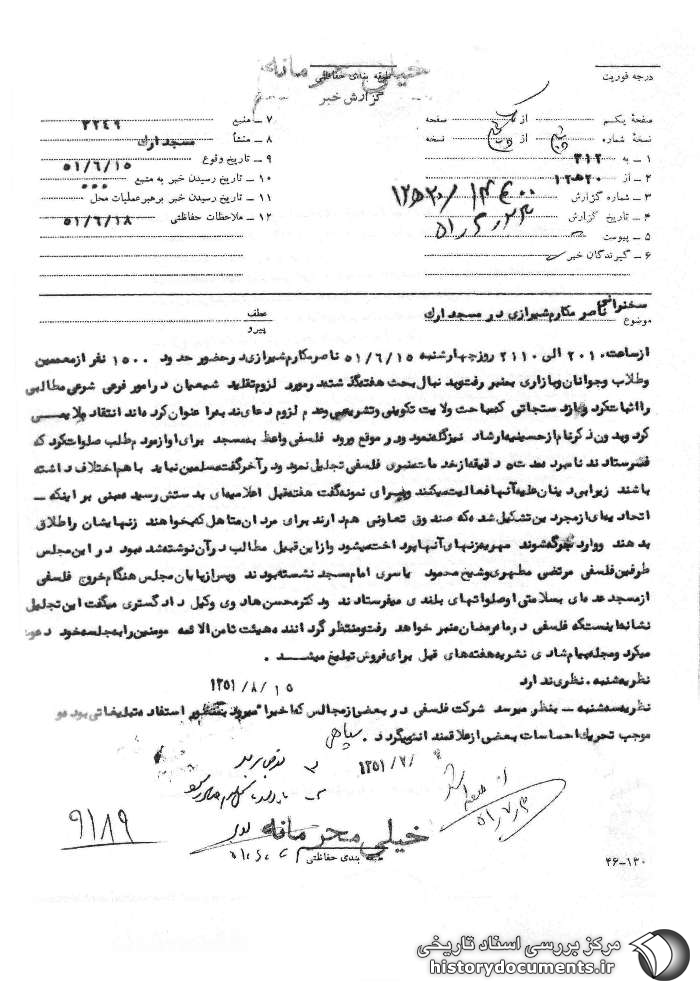 درجه فوریت
خیلی محرمانه
طبقه بندی حفاظتی
گزارش خبر
صفحهٔ یکم از صفحه
نسخهٔ شماره از نسخه
۱ ــ به ۳۱۲
۲ ــ از ۱۲ﻫ۲۰
۳ ــ شماره گزارش ۱۲ﻫ۲۰/۱۴۶۰۰
۴ ــ تاریخ گزارش
۵ ــ پیوست
۶ ــ گیرندگان خبر
۷ ــ منبع ۳۲۴۹
۸ ــ منشأ مسجد ارك
۹ ــ تاریخ وقوع ۵۱/۶/۱۵
۱۰ ــ تاریخ رسیدن خبر به منبع
۱۱ ــ تاریخ رسیدن خبر برهبر عملیات محل
۱۲ ــ ملاحظات حفاظتی ۵۱/۶/۱۸
موضوع سخنرانی ناصر مکارم شیرازی در مسجد ارك
عطف
پیرو
از ساعت ۲۰۱۰ الی ۲۱۱۰ روز چهارشنبه ۵۱/۶/۱۵ ناصر مکارم شیرازی در حضور حدود ۱۵۰۰ نفر از معممین
و طلاب و جوانان و بازاری بمنبر رفت و بدنبال بحث هفته گذشته در مورد لزوم تقلید شیعیان در امور فرعی شرعی مطالبی
را اثبات کرد و از دستجاتی که مباحث ولایت تکوینی و تشریعی و عدم لزوم دعای ندبه را عنوان کرده اند انتقاد ملایمی
کرد و بدون ذکر نام از حسینیه ارشاد نیز گله نمود و در موقع ورود فلسفی واعظ به مسجد برای او از مردم طلب صلوات کرد که
فرستادند نامبرده بمدت ۵ دقیقه از خدمات منبری فلسفی تجلیل نمود و در آخر گفت مسلمین نباید با هم اختلاف داشته
باشند زیرا بی دینان علیه آنها فعالیت میکنند و برای نمونه گفت هفته قبل اعلامیه ای بدستش رسیده مبنی بر اینکه ــ
اتحادیه ای از مجردین تشکیل شده که صندوق تعاونی هم دارند برای مردان متاهل که بخواهند زنهایشان را طلاق
بدهند و وارد جرگه شوند مهریه زنهای آنها پرداخت میشود و از این قبیل مطالب در آن نوشته شده بود در این مجلس
طرفین فلسفی مرتضی مطهری و شیخ محمود یاسری امام مسجد نشسته بودند و پس از پایان مجلس هنگام خروج فلسفی
از مسجد عده ای بسلامتی او صلواتهای بلندی میفرستادند و دکتر محسن هادوی وکیل دادگستری میگفت این تجلیل
نشانه اینستکه فلسفی در ماه رمضان منبر خواهد رفت و منتظر گرداننده هیئت ثامن الائمه مومنین را به جلسه خود دعوت
میکرد و مجله پیام شادی نشریه هفته های قبل برای فروش تبلیغ میشد .
نظریه شنبه . نظری ندارد
۱۳۵۱/۸/۱۵
نظریه سه شنبه ــ بنظر میرسد شرکت فلسفی در بعضی از مجالس که اخیرا میرود بمنظور استفاده تبلیغاتی بوده و
موجب تحریك احساسات بعضی از علاقمندانش میگردد . سپاهی
۱۳۵۱/۷/
۹۱۸۹
خیلی محرمانه
طبقه بندی حفاظتی
۴۶-۱۳۰
مرکز بررسی اسناد تاریخی
historydocuments.ir